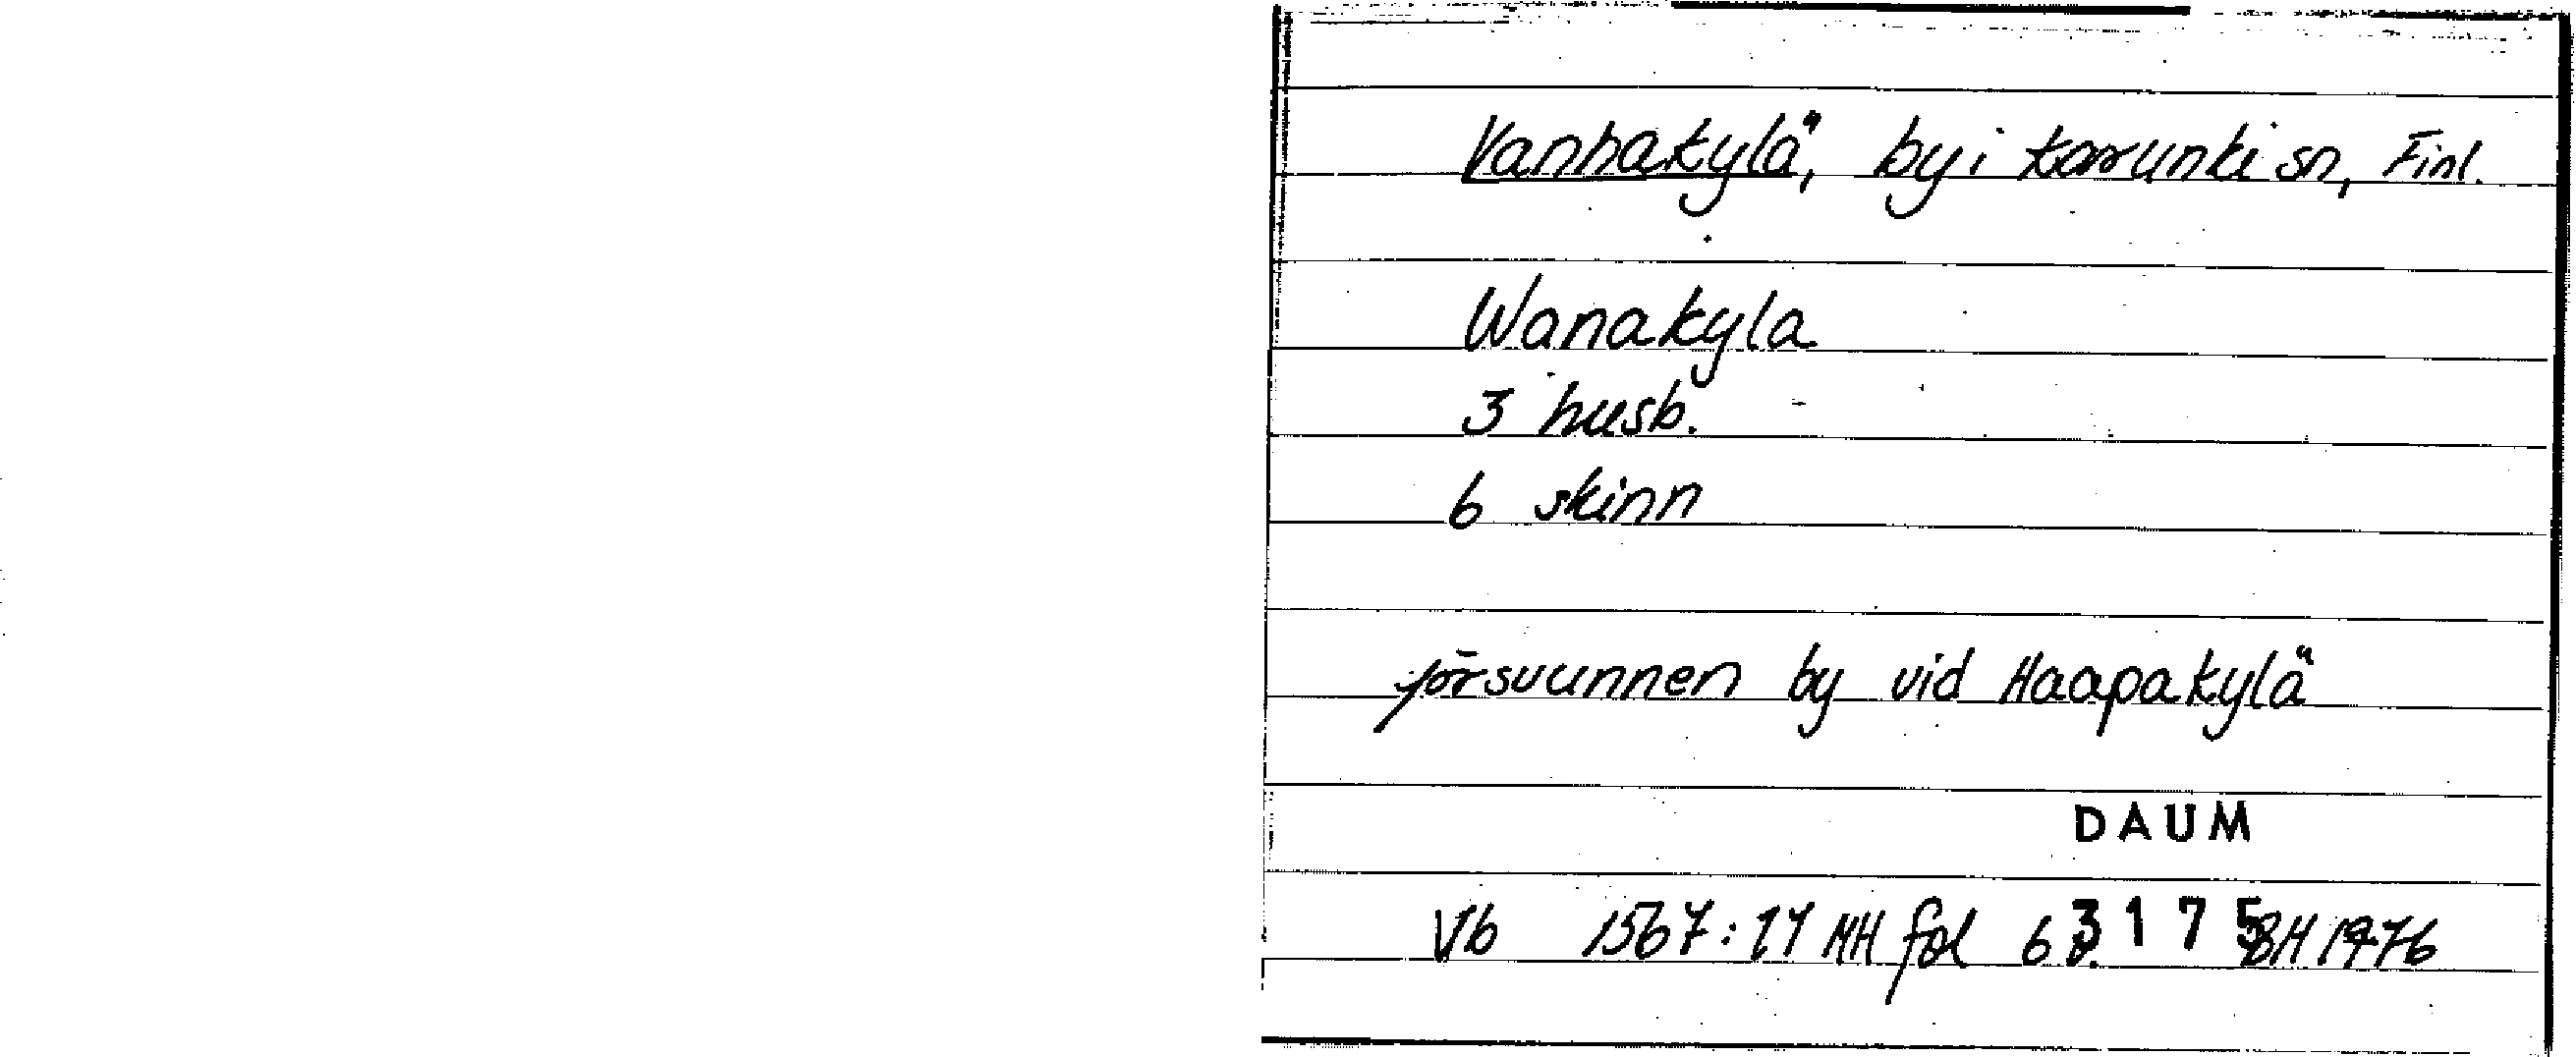 Vanhakylä, by i Karunki sn, Finl.
Wanakyla
3 husb.
6 skinn
försvunnen by vid Haapakylä
DAUM
Vb 1567:17 MH fol 6 3175 BH 1976